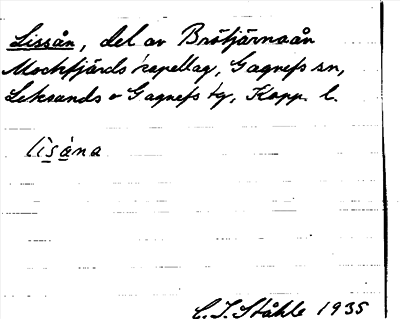 Lissån, del av Brötjärnaån
Mockfjärds kapellag, Gagnefs sn,
Leksands o Gagnefs tg, Kopp. l.
lisåna
C. I. Ståhle 1935